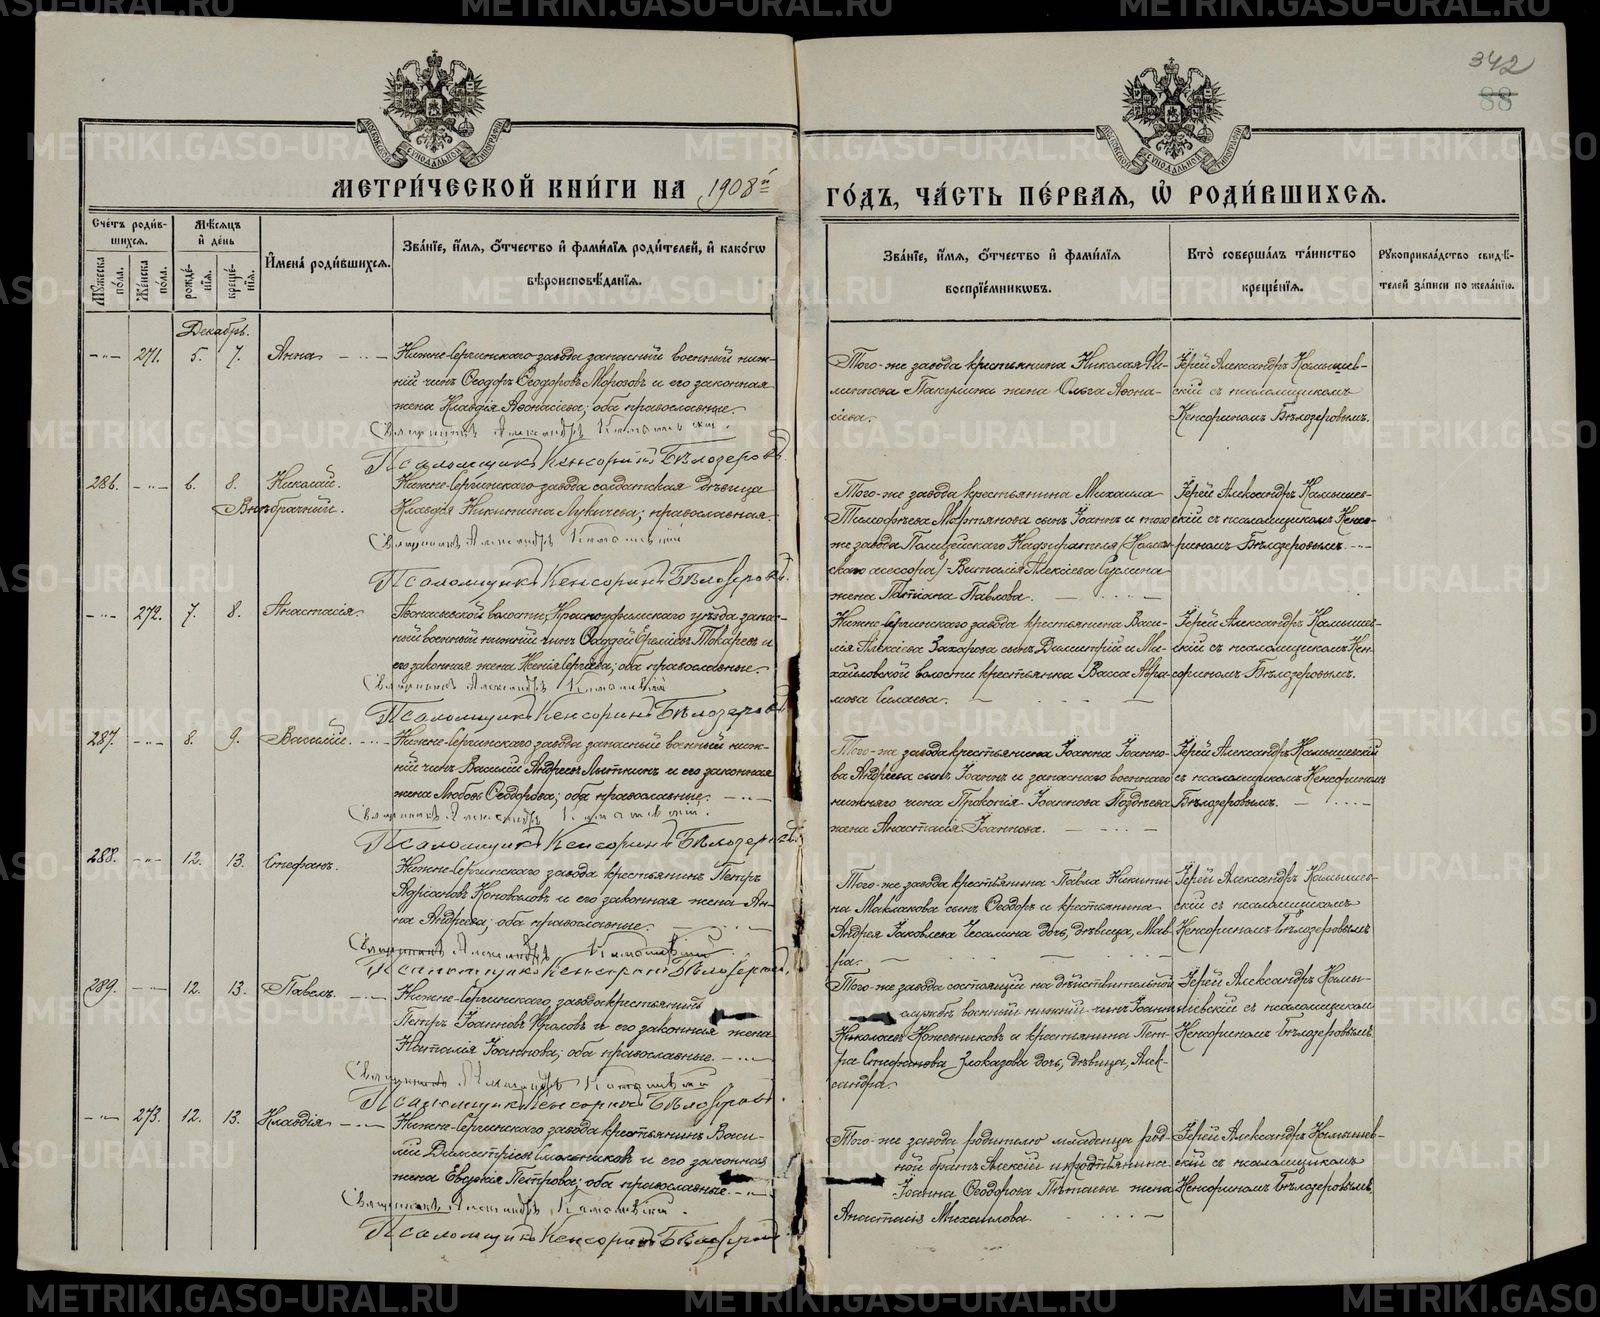 METRIKI.GASO-URAL.RU
342
88
МОСКОВСКОЙ СѴНОДАЛЬНОЙ ТИПОГРАФІИ
МОСКОВСКОЙ СѴНОДАЛЬНОЙ ТИПОГРАФІИ
МЕТРИ́ЧЕСКОЙ КНИ́ГИ НА 1908й
ГО́ДЪ, ЧА́СТЬ ПЕ́РВАЯ, Ѡ҆ РОДИ́ВШИХСЯ.
Сче́тъ роди́в-
шихся.
Му́жеска по́ла.
Же́нска по́ла.
Мѣ́сяцъ
и҆ де́нь
рожде́нія.
креще́нія.
И҆мена̀ роди́вшихся.
Зва́ніе, и҆́мя, ѻ҆́тчество и҆ фами́лія роди́телей, и҆ како́гѡ
вѣроисповѣ́данія.
Зва́ніе, и҆́мя, ѻ҆́тчество и҆ фами́лія
воспріе́мниковъ.
Кто̀ соверша́лъ та́инство
креще́нія.
Рꙋкоприкла́дство свидѣ́-
телей за́писи по жела́нію.
Декабрь.
-"- 271. 5. 7. Анна
Нижне-Сергинскаго завода запасный военный ниж-
ній чинъ Ѳеодоръ Ѳеодоровъ Морозовъ и его законная
жена Клавдія Аѳонасіева; оба православные.
Священникъ Александръ Камышевскій.
Псаломщикъ Кенсоринъ Бѣлозеровъ.
Того-же завода крестьянина Николая Фи-
липпова Пакулина жена Ольга Аѳона-
сіева.
Іерей Александръ Камышев-
скій съ псаломщикомъ
Кенсориномъ Бѣлозеровымъ.
286. -"- 6. 8. Николай.
Внѣбрачный.
Нижне-Сергинскаго завода солдатская дѣвица
Клавдія Никитина Лукичева; православная.
Священникъ Александръ Камышевскій
Псаломщикъ Кенсоринъ Бѣлозеровъ.
Того-же завода крестьянина Михаила
Тимофѣева Мартьянова сынъ Іоаннъ и того
же завода Полицейскаго Надзирателя
асессора) Виталія Алексіева Суслина
жена Татіана Павлова.
Іерей Александръ Камышев-
скій съ псаломщикомъ Кенсо-
риномъ Бѣлозеровымъ.
-"- 272. 7. 8. Анастасія.
Аѳонасьевской волости, Красноуфимскаго уѣзда запас-
ный военный нижній чинъ Ѳаддей Еремѣевъ Токаревъ и
его законная жена Ксенія Сергіева; оба православные.
Священникъ Александръ Камышевскій
Псаломщикъ Кенсоринъ Бѣлозеровъ.
Нижне-Сергинскаго завода крестьянина Васи-
лія Алексіева Захарова сынъ Димитрій и Ми-
хайловской волости крестьянка Васса Авра-
мова Силаева.
Іерей Александръ Камышев-
скій съ псаломщикомъ Кен-
сориномъ Бѣлозеровымъ.
287. -"- 8. 9. Василій.
Нижне-Сергинскаго завода запасный военный ниж-
ній чинъ Василій Андреевъ Лыткинъ и его законная
жена Любовь Ѳеодорова; оба православные.
Священникъ Александръ Камышевскій.
Псаломщикъ Кенсоринъ Бѣлозеровъ.
Того-же завода крестьянина Іоанна Іоанно-
ва Андреева сынъ Іоаннъ и запаснаго военнаго
нижняго чина Прокопія Іоаннова Позднѣева
жена Анастасія Іоаннова.
Іерей Александръ Камышевскій
съ псаломщикомъ Кенсориномъ
Бѣлозеровымъ.
288. -"- 12. 13. Стефанъ.
Нижне-Сергинскаго завода крестьянинъ Петръ
Адріановъ Коноваловъ и его законная жена Ан-
на Андреева; оба православные.
Священникъ Александръ Камышевскій
Псаломщикъ Кенсоринъ Бѣлозеровъ.
Того-же завода крестьянина Павла Никити-
на Маклакова сынъ Ѳеодоръ и крестьянина
Андрея Іаковлева Чесалина дочь, дѣвица, Мав-
ра.
Іерей Александръ Камышев-
скій съ псаломщикомъ
Кенсориномъ Бѣлозеровымъ
289. -"- 12. 13. Павелъ.
Нижне-Сергинскаго завода крестьянинъ
Петръ Іоанновъ Фроловъ и его законная жена
Наталія Іоаннова; оба православные.
Священникъ Александръ Камышевскій
Псаломщикъ Кенсоринъ Бѣлозеровъ.
Того-же завода состоящій на дѣйствительной
службѣ военный нижній чинъ Іоаннъ
Николаевъ Кожевниковъ и крестьянина Пет-
ра Стефанова Злоказова дочь, дѣвица, Алек-
сандра.
Іерей Александръ Камы-
шевскій съ псаломщикомъ
Кенсориномъ Бѣлозеровымъ.
-"- 273. 12. 13. Клавдія
Нижне-Сергинскаго завода крестьянинъ Васи-
лій Димитріевъ Мальниковъ и его законная
жена Евдокія Петрова; оба православные.
Священникъ Александръ Камышевскій.
Псаломщикъ Кенсоринъ Бѣлозеровъ.
Того-же завода родителю младенца род-
ной братъ Алексій и крестьянина
Іоанна Ѳеодорова Пѣтаева жена
Анастасія Михаилова.
Іерей Александръ Камышев-
скій съ псаломщикомъ
Кенсориномъ Бѣлозеровымъ.